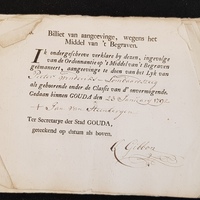 Billiet van aangeevinge, wegens het
Middel van 't Begraven.
Ik ondergeschreve verklare by dezen, ingevolge
van de Ordonnantie op 't Middel van 't Begraven
geëmaneert, aangeevinge te doen van het Lyk van
Pieter
als gehoorende onder de Classis van d' onvermogende.
Gedaan binnen GOUDA den 23 January
Jan van
Ter Secretarye der Stad GOUDA,
geteekend op datum als boven.